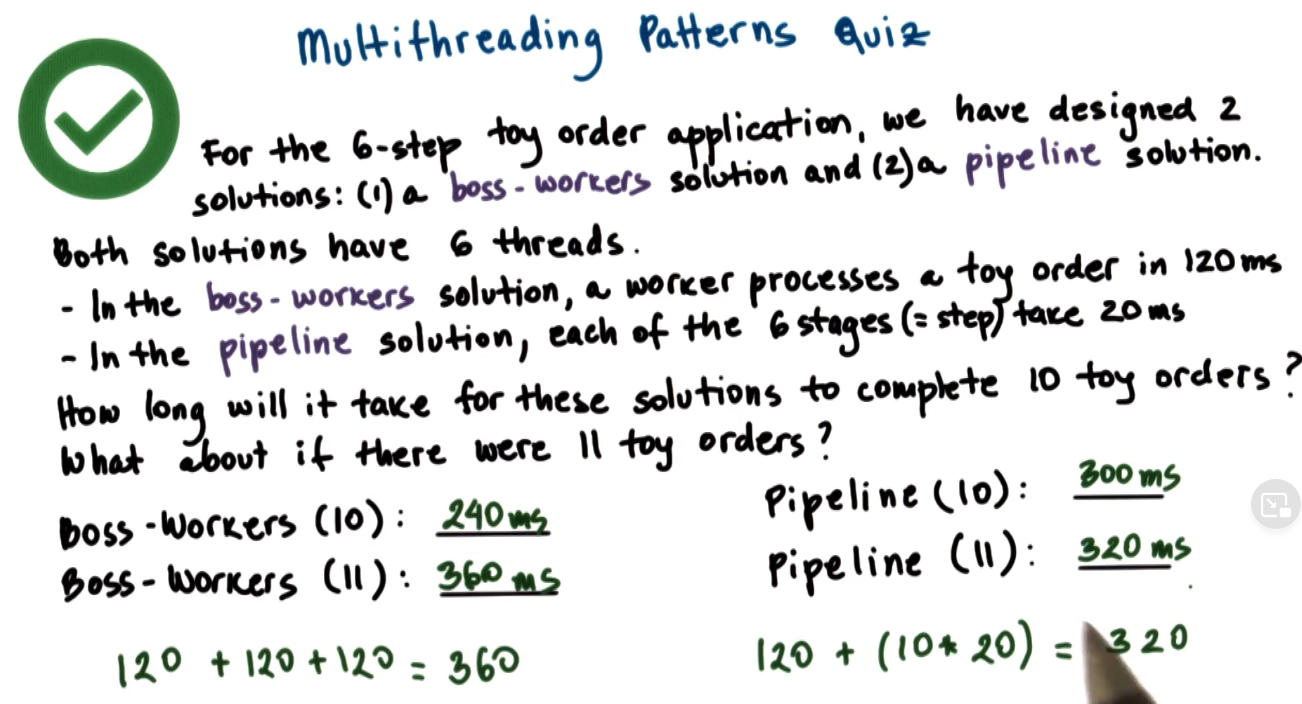 Multithreading Patterns Quiz
For the 6-step toy order application, we have designed 2
solutions: (1) a boss-workers solution and (2) a pipeline solution.
Both solutions have 6 threads.
- In the boss-workers solution, a worker processes a toy order in 120ms
- In the pipeline solution, each of the 6 stages (= step) take 20ms
How long will it take for these solutions to complete 10 toy orders?
What about if there were 11 toy orders?
Boss-Workers (10): 240ms
Pipeline (10): 300ms
Boss-Workers (11): 360ms
Pipeline (11): 320ms
120 + 120 + 120 = 360
120 + (10 * 20) = 320